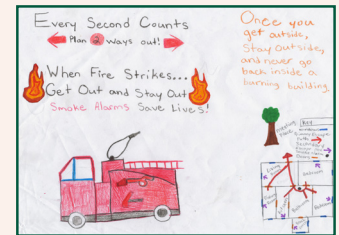 Every Second Counts
Plan 2 ways out!
When Fire Strikes...
Get Out and Stay Out
Smoke Alarms Save Lives!
Once you
get outside,
Stay Outside,
and never go
back inside a
burning building.
Key